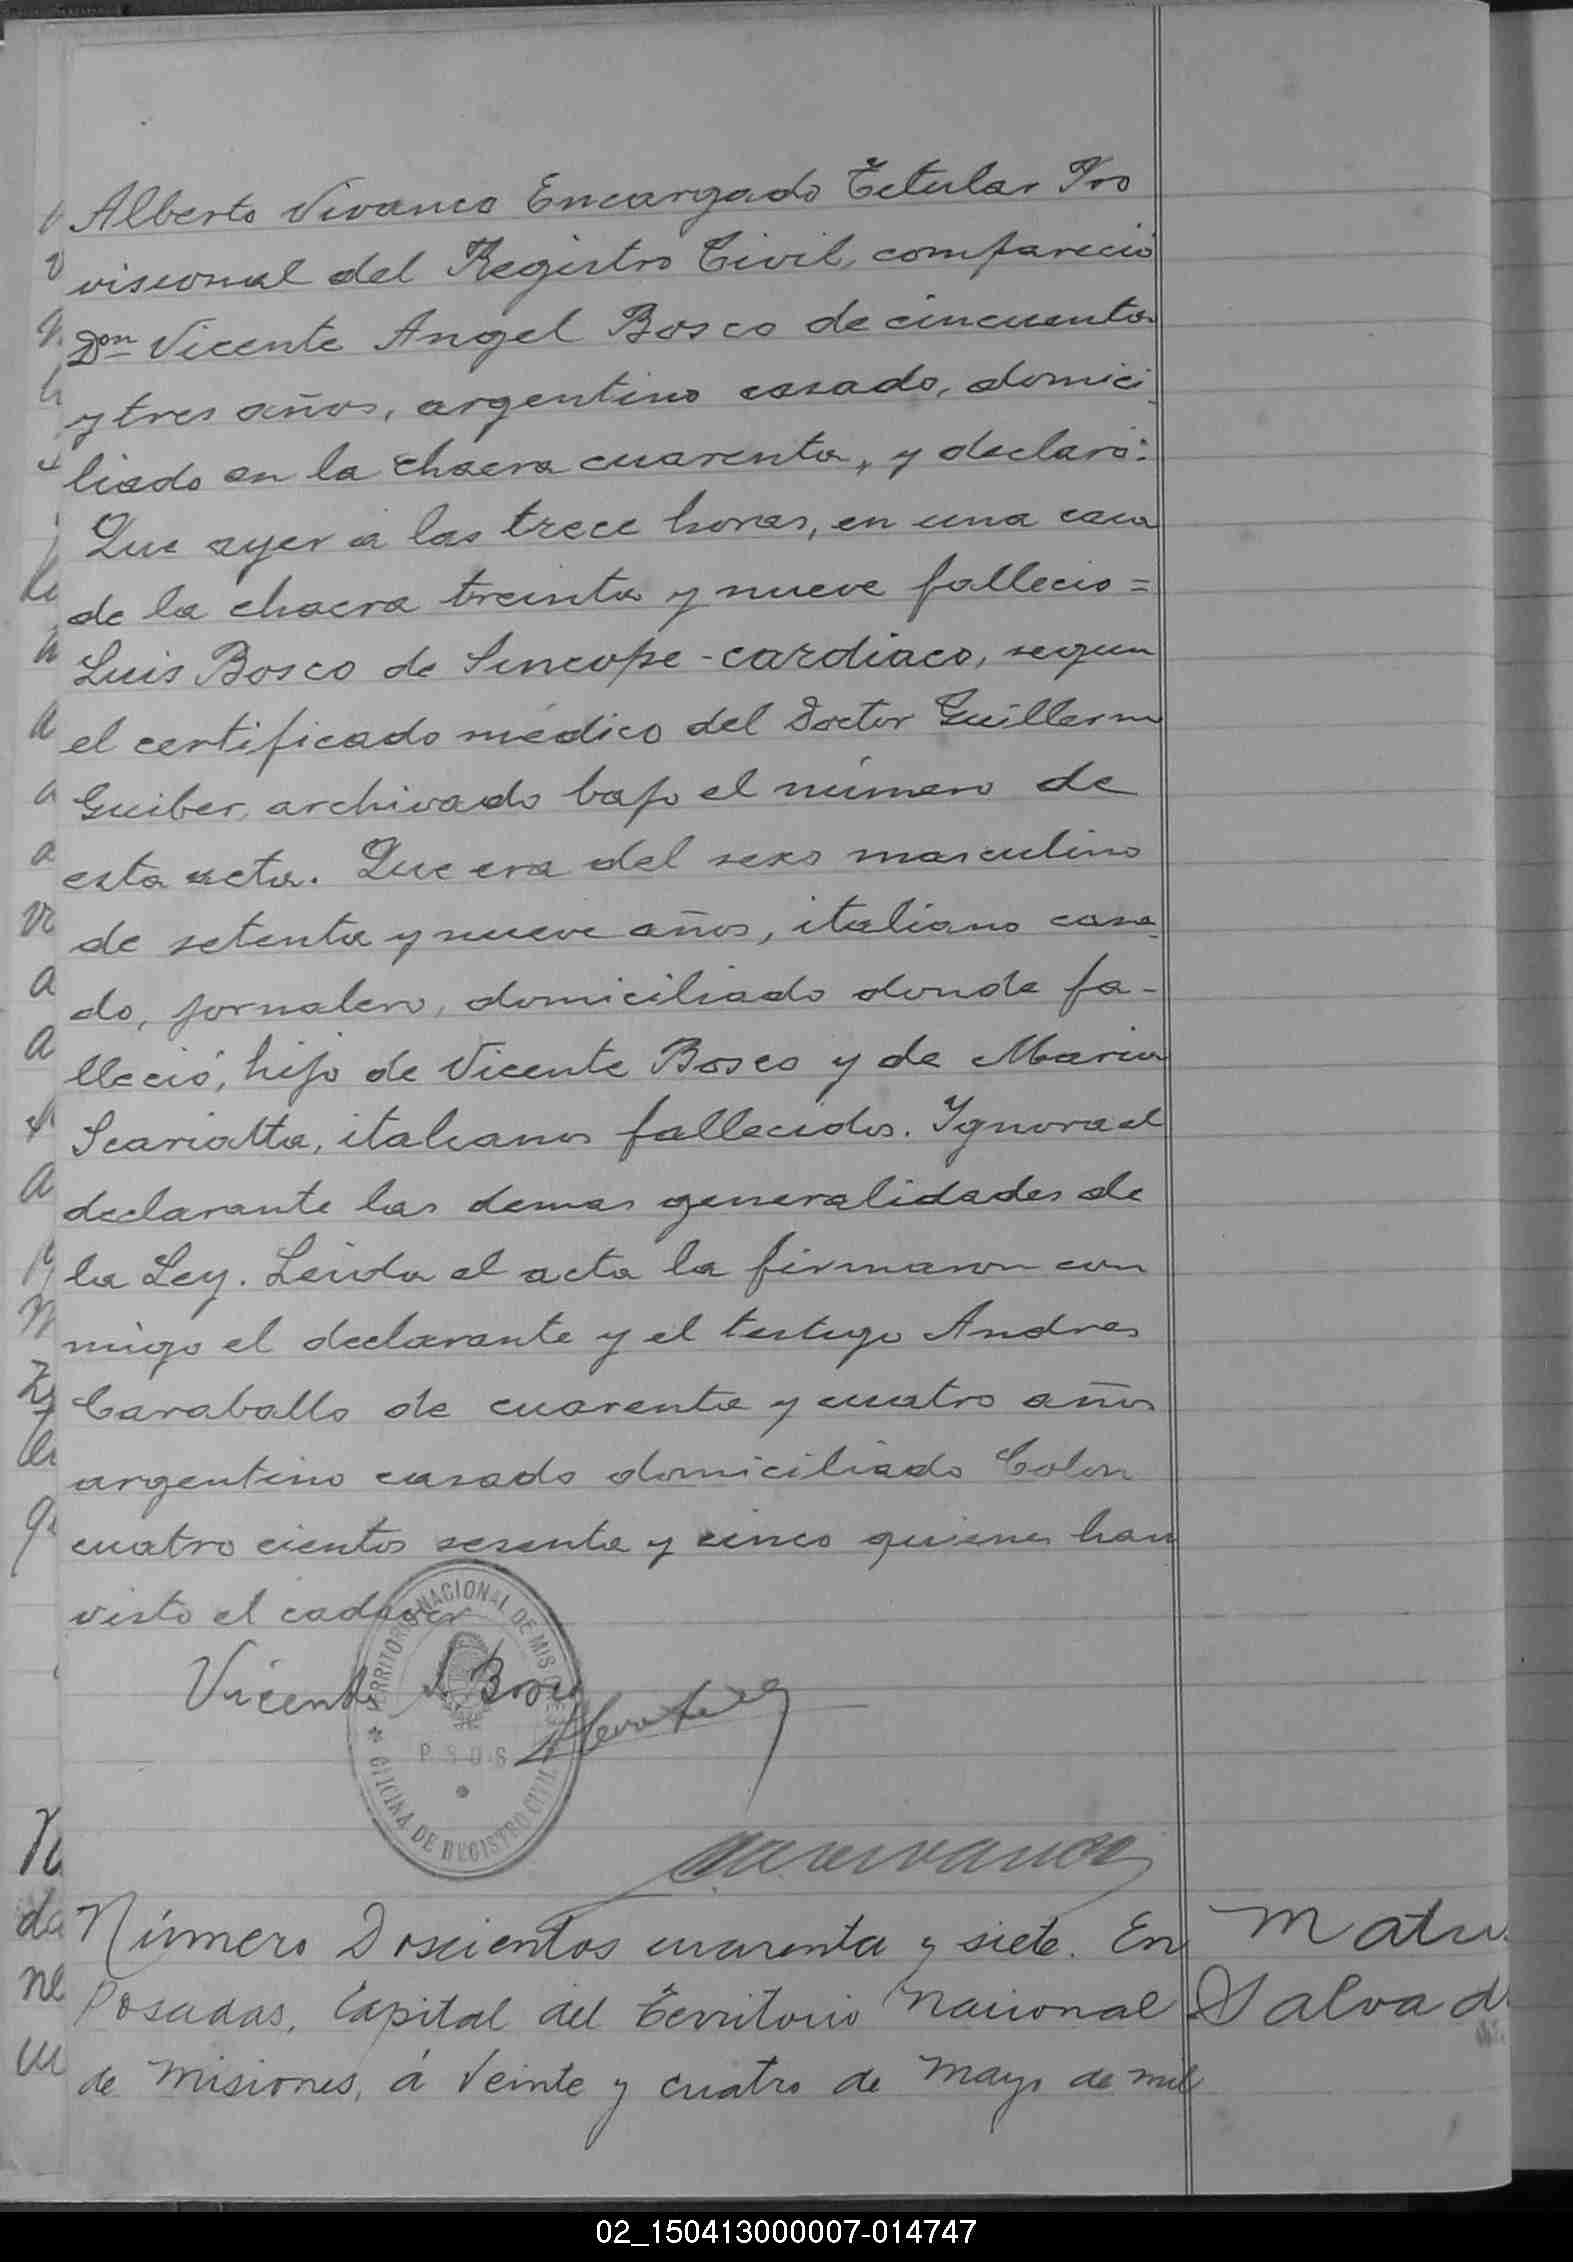 Alberto Vivanco Encargado Titular Pro
visional del Registro Civil, compareció
Don Vicente Angel Bosco de cincuenta
y tres años, argentino casado, domici
liado en la chacra cuarenta, y declaró:
Que ayer a las trece horas, en una casa
de la chacra treinta y nueve fallecio =
Luis Bosco de Sincope-cardiaco, segun
el certificado médico del Doctor Guillermo
Guiber, archivado bajo el número de
esta acta. Que era del sexo masculino
de setenta y nueve años, italiano casa
do, jornalero, domiciliado donde fa-
lleció, hijo de Vicente Bosco y de Maria
italianos fallecidos. Ignora el
declarante las demas generalidades de
la Ley. Leida el acta la firmaron con
migo el declarante y el testigo Andres
Caraballo de cuarenta y cuatro años
argentino casado domiciliado Colon
cuatro cientos sesenta y cinco quienes han
visto el cadaver
Vicente A Bosco
TERRITORIO NACIONAL DE MISIONES
OFICINA DE REGISTRO CIVIL
Número Doscientos cuarenta y siete. En
Posadas, Capital del Territorio Nacional
de Misiones, á Veinte y cuatro de Mayo de mil
Matu
Salvad
02_150413000007-014747